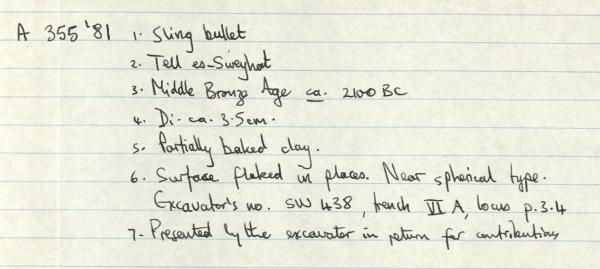 A 355'81 1. Sling bullet
2. Tell es-Sweyhat
3. Middle Bronze Age ca. 2100 BC
4. Di. ca. 3.5cm.
5. Partially baked clay.
6. Surface flaked in places. Near spherical type.
Excavator's no. SW 438, trench VI A, locus p.3.4
7. Presented by the excavator in return for contributions